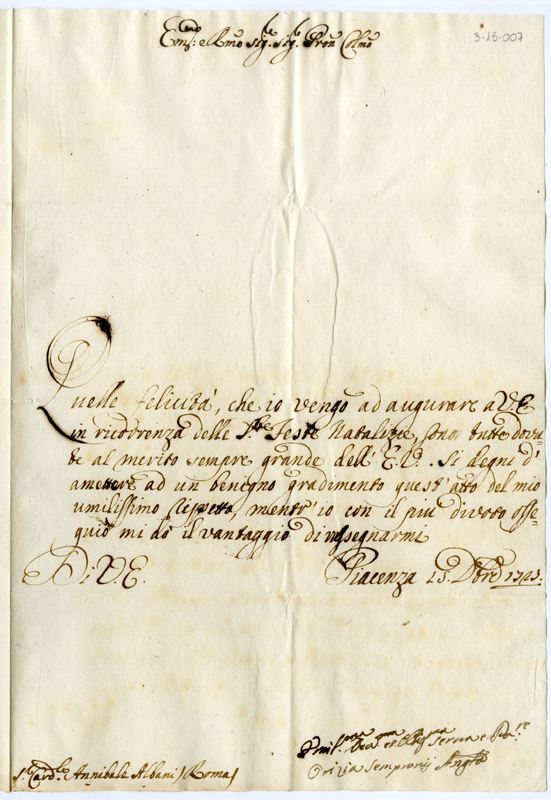 Em.mo e Rmo Sig.r Sig.r Pron Colmo
3-15-007
Quelle felicità, che io vengo ad augurare a V.E.
in ricorrenza delle S.te Feste Natalizie, sono tutte dovu
te al merito sempre grande dell' E.V. Si degni d'
amettere ad un benegno gradimento quest' atto del mio
umilissimo rispetto, mentr' io con il più divoto osse=
quio mi dò il vantaggio di rassegnarmi
Di V.E.
Piacenza 15. Dbre 1723.
Umil.ma Dev.ma et Obbl.ma Serva e
Orizia Sempronij
S.r Card.le Annibale Albani / Roma /